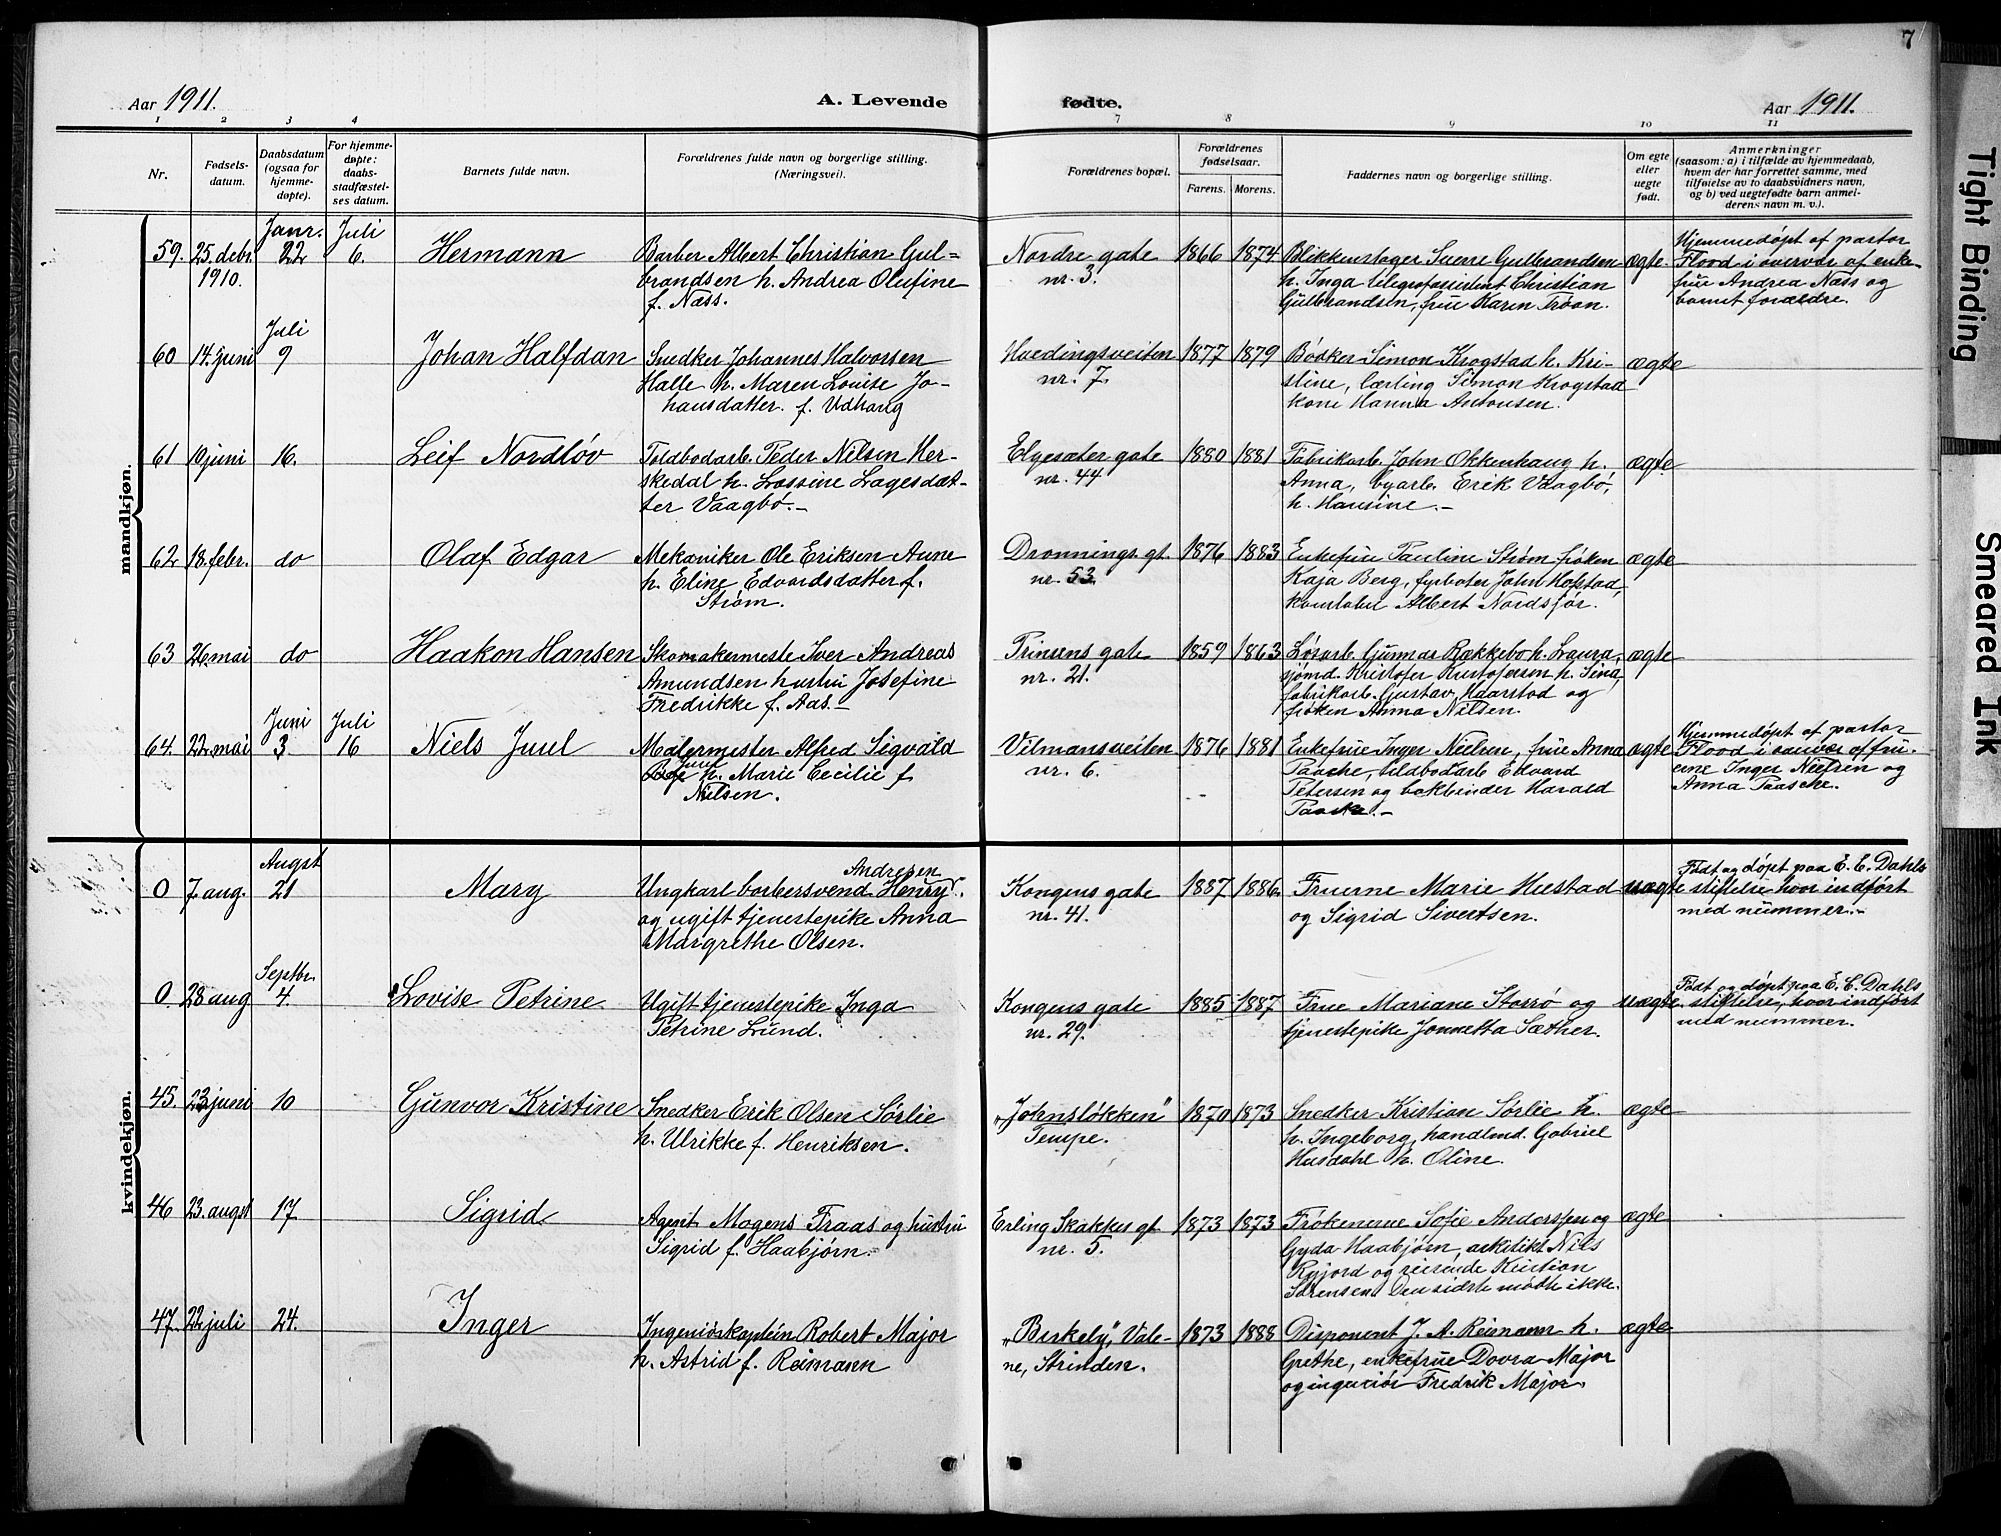 7
Aar 1911.
A. Levende
fødte.
Aar 1911.
1 2 3 4 7 8 9 10 11
Nr.
Fødsels-
datum.
Daabsdatum
(ogsaa for
hjemme-
døpte).
For hjemme-
døpte:
daabs-
stadfæstel-
ses datum.
Barnets fulde navn.
Forældrenes fulde navn og borgerlige stilling.
(Næringsvei).
Forældrenes bopæl.
Forældrenes
fødselsaar.
Farens. Morens.
Faddernes navn og borgerlige stilling.
Om egte
eller
uegte
født.
Anmerkninger
(saasom: a) i tilfælde av hjemmedaab,
hvem der har forrettet samme, med
tilføielse av to daabsvidners navn,
og b) ved uegtefødte barn anmel-
derens navn m. v.).
mandkjøn.
59. 25. debr.
1910.
Janr.
22
Juli
6.
Hermann
Barber Albert Christian Gul-
brandsen h. Andrea Olufine
f. Næss.
Nordre gate
nr. 3.
1866 1874
Blikkenslager Sverre Gulbrandsen
h. Inga telegrafassistent Christian
Gulbrandsen, frue Karen Trøan.
ægte.
Hjemmedøpt af pastor
Flood i overvær af enke-
frue Andrea Næss og
barnet forældre.
60 14. juni
Juli
9
Johan Halfdan
Snedker Johannes Halvorsen
Halle h. Maren Louise Jo-
hansdatter f. Udhaug
Hvedingsveiten
nr. 7.
1877 1879
Bødker Simon Krogstad h. Kri-
stine, lærling Simon Krogstad
kone Hanna Antonsen.
ægte
61 10 juni 16.
Leif Nordløv
Toldbodarb. Peder Nilsen Her-
skedal h. Lassine Lagesdat-
ter Vaagbø.-
Elgesæter gate
nr. 44
1880 1881
Fabrikarb. John Okkenhaug h.
Anna, byarb. Erik Vaagbø,
h. Hansine.-
ægte
62 18. febr. do
Olaf Edgar
Mekaniker Ole Eriksen Aune
h. Eline Edvardsdatter f.
Strøm.
Dronnings. gt.
nr. 53.
1876 1883
Enkefrue Pauline Strøm frøken
Kaja Berg, fyrbøter John Hofstad,
konstabel Albert Nordsjør.
ægte
63 26 mai do
Haakon Hansen
Skomakermeste Iver Andreas
Amundsen hustru Josefine
Fredrikke f. Aas.-
Prinsens gate
nr. 21.
1859 1863
Løsarb. Gunnar Rækkebo h. Laura,
sjømd. Kristofer Kristofersen h. Sina,
fabrikarb. Gustav Haarstad og
frøken Anna Nilsen.
ægte
64. 22. mai
Juni
3
Juli
16
Niels Juul
Malermester Alfred Sigvald
Juul
Bøe h. Marie Cecilie f
Nilsen.
Vilmansveiten
nr. 6.
1876 1881
Enkefrue Inger Nielsen, frue Anna
Paasche, toldbodarb Edvard
Petersen og bokbinder Harald
Paaske.-
ægte
Hjemmedøpt af pastor
Flood i overvær af fru-
erne Inger Nielsen og
Anna Paasche.
kvindekjøn.
0 7 aug.
Augst
21
Mary
Andresen
Ungkarl barbersvend Henry
og ugift tjenestepike Anna
Margrethe Olsen.
Kongens gate
nr. 41.
1887 1886
Fruerne Marie Hustad
og Sigrid Sivertsen.
uægte
Født og døpt paa E. C. Dahls
stiftelse hvor indført
med nummer.-
0. 28 aug
Septbr.
4.
Lovise Petrine
Ugift tjenestepike Inga
Petrine Lund.
Kongens gate
nr. 29.
1885 1887
Frue Mariane Storrø og
tjenestepike Jonnetta Sæther.
uægte
Født og døpt paa E. C. Dahls
stiftelse, hvor indført
med nummer.
45. 23 juni 10
Gunvor Kristine
Snedker Erik Olsen Sørlie
h. Ulrikke f. Henriksen.
„Johnsløkken"
Tempe.
1870 1873
Snedker Kristian Sørlie h.
h. Ingeborg, handlmd. Gabriel
Husdahl h. Oline.
ægte
46 23. augst 17
Sigrid
Agent Mogens Fraas og hustru
Sigrid f. Haabjørn.
Erling Skakkes gt.
nr. 5.
1873 1873
Frøknerne Sofie Anderssen og
Gyda Haabjørn, arkitekt Nils
Ryjord og reisende Kristian
Sørensen. Den sidste mødte ikke.
ægte
47. 22 juli 24.
Inger
Ingeniørkaptein Robert Major
h. Astrid f. Reimann
„Birkely", Vale-
ne, Strinden.
1873 1888
Disponent J. A. Reimann h.
Grethe, enkefrue Dovra Major
og ingeniør Fredrik Major.
ægte
Tight Binding
Smeared Ink